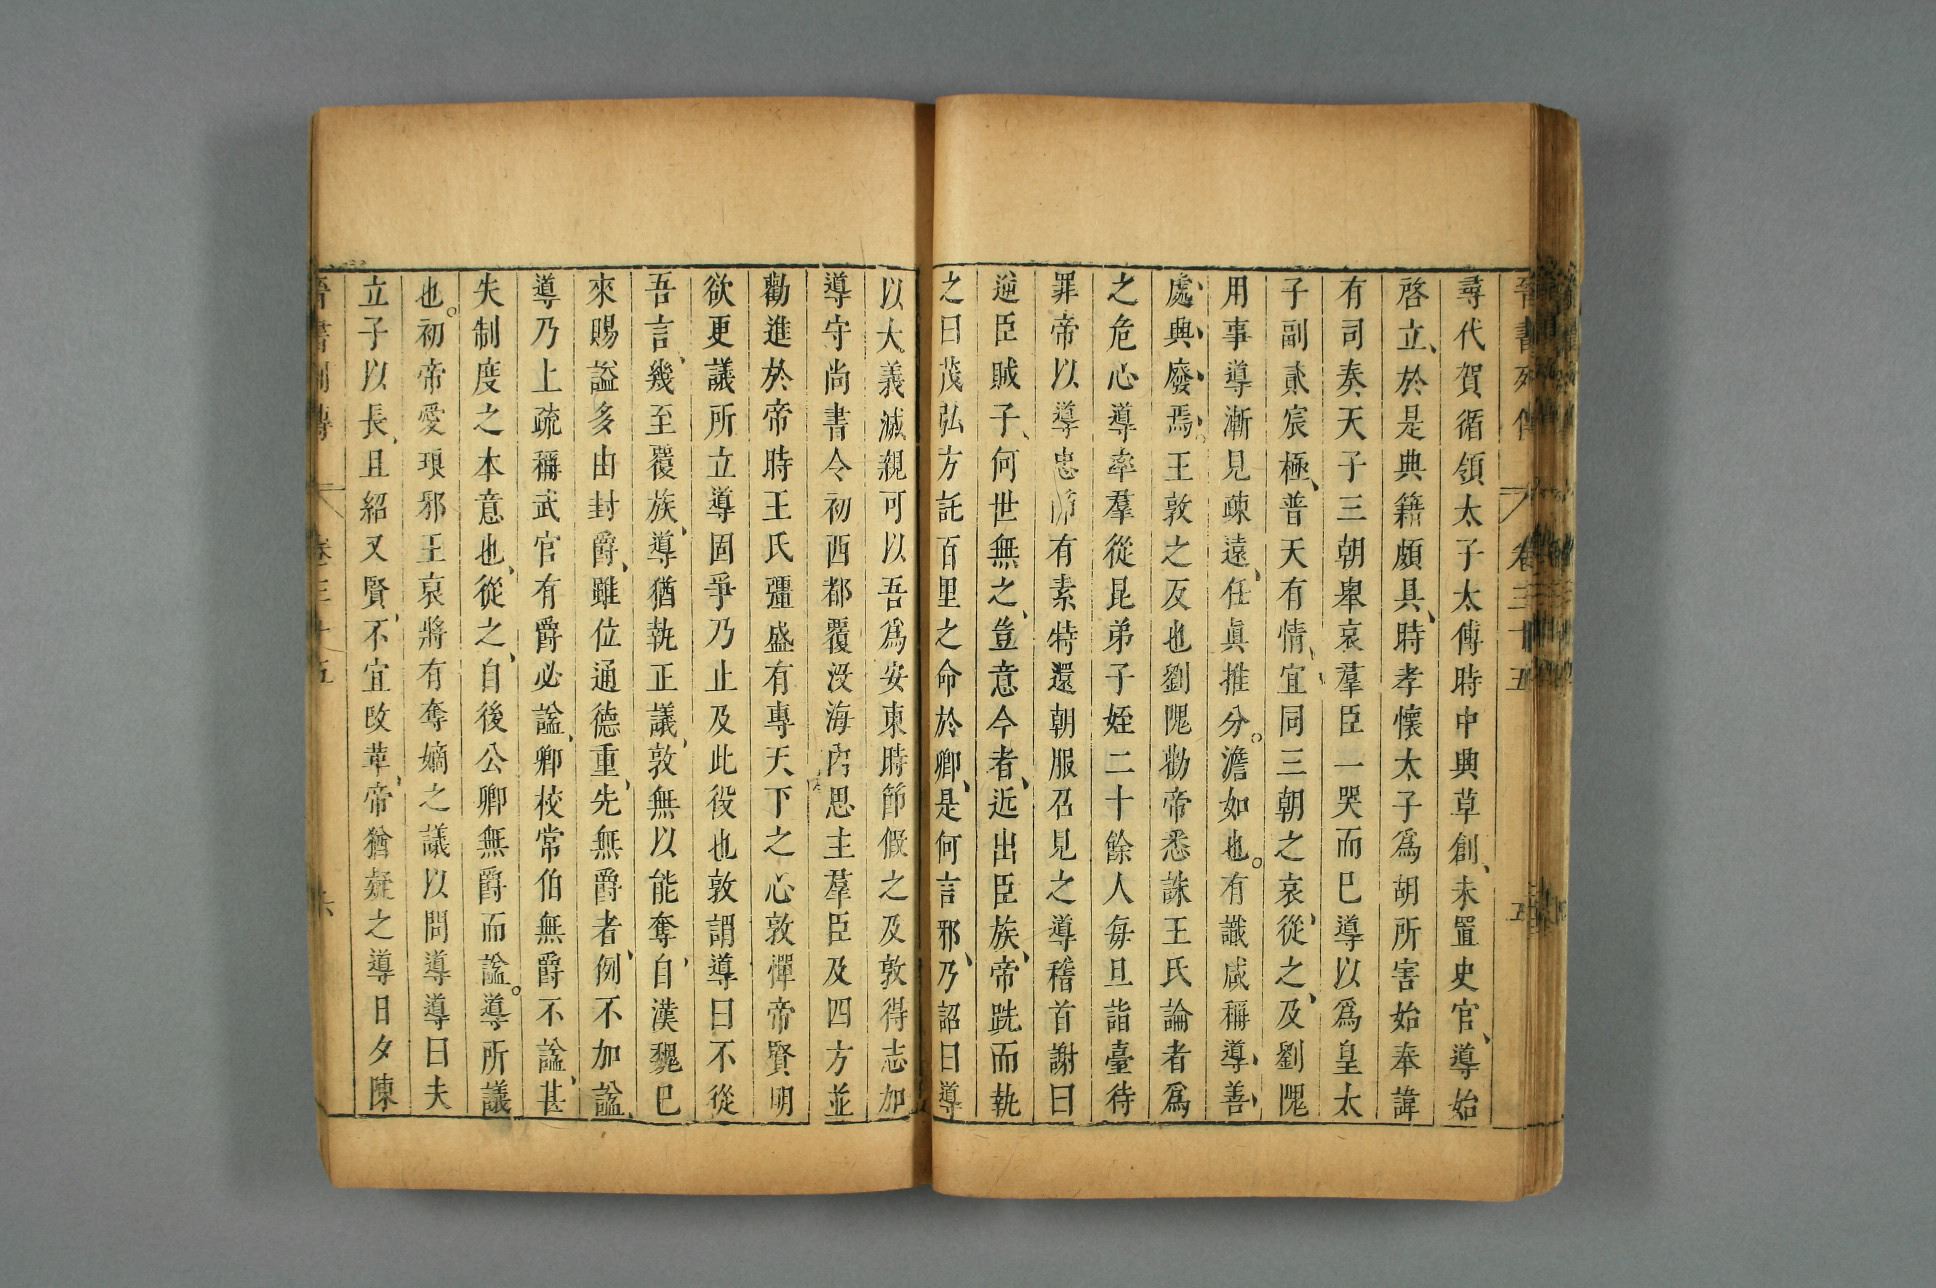 晉書列傳 卷三十五 五
尋代賀循領太子太傅時中興草創、未置史官、導始
啓立、於是典籍頗具、時孝懷太子爲胡所害始奉諱
有司奏天子三朝舉哀羣臣一哭而已導以爲皇太
子副貳宸極、普天有情、宜同三朝之哀、從之、及劉隗
用事導漸見疎遠、任眞推分。澹如也。有識咸稱導、善、
處、興、廢、焉。王敦之反也劉隗勸帝悉誅王氏論者爲
之危心導率羣從昆弟子姪二十餘人每旦詣臺待
罪帝以導忠節有素特還朝服召見之導稽首謝曰
逆臣賊子、何世無之、豈意今者、近出臣族、帝跣而執
之曰茂弘方託百里之命於卿、是何言邪、乃詔曰導
以大義滅親可以吾爲安東時節假之及敦得志加
導守尚書令初西都覆没海內思主羣臣及四方並
勸進於帝時王氏彊盛有專天下之心敦憚帝賢明
欲更議所立導固爭乃止及此役也敦謂導曰不從
吾言、幾至覆族、導猶執正議、敦無以能奪、自漢魏已
來賜謚多由封爵、雖位通德重、先無爵者、例不加謚、
導乃上疏稱武官有爵必謚、卿校常伯無爵不謚、甚
失制度之本意也、從之、自後公卿無爵而謚。導所議
也。初帝愛琅邪王裒將有奪嫡之議以問導導曰夫
立子以長、且紹又賢、不宜改革、帝猶疑之導日夕陳
晉書列傳 卷三十五 六